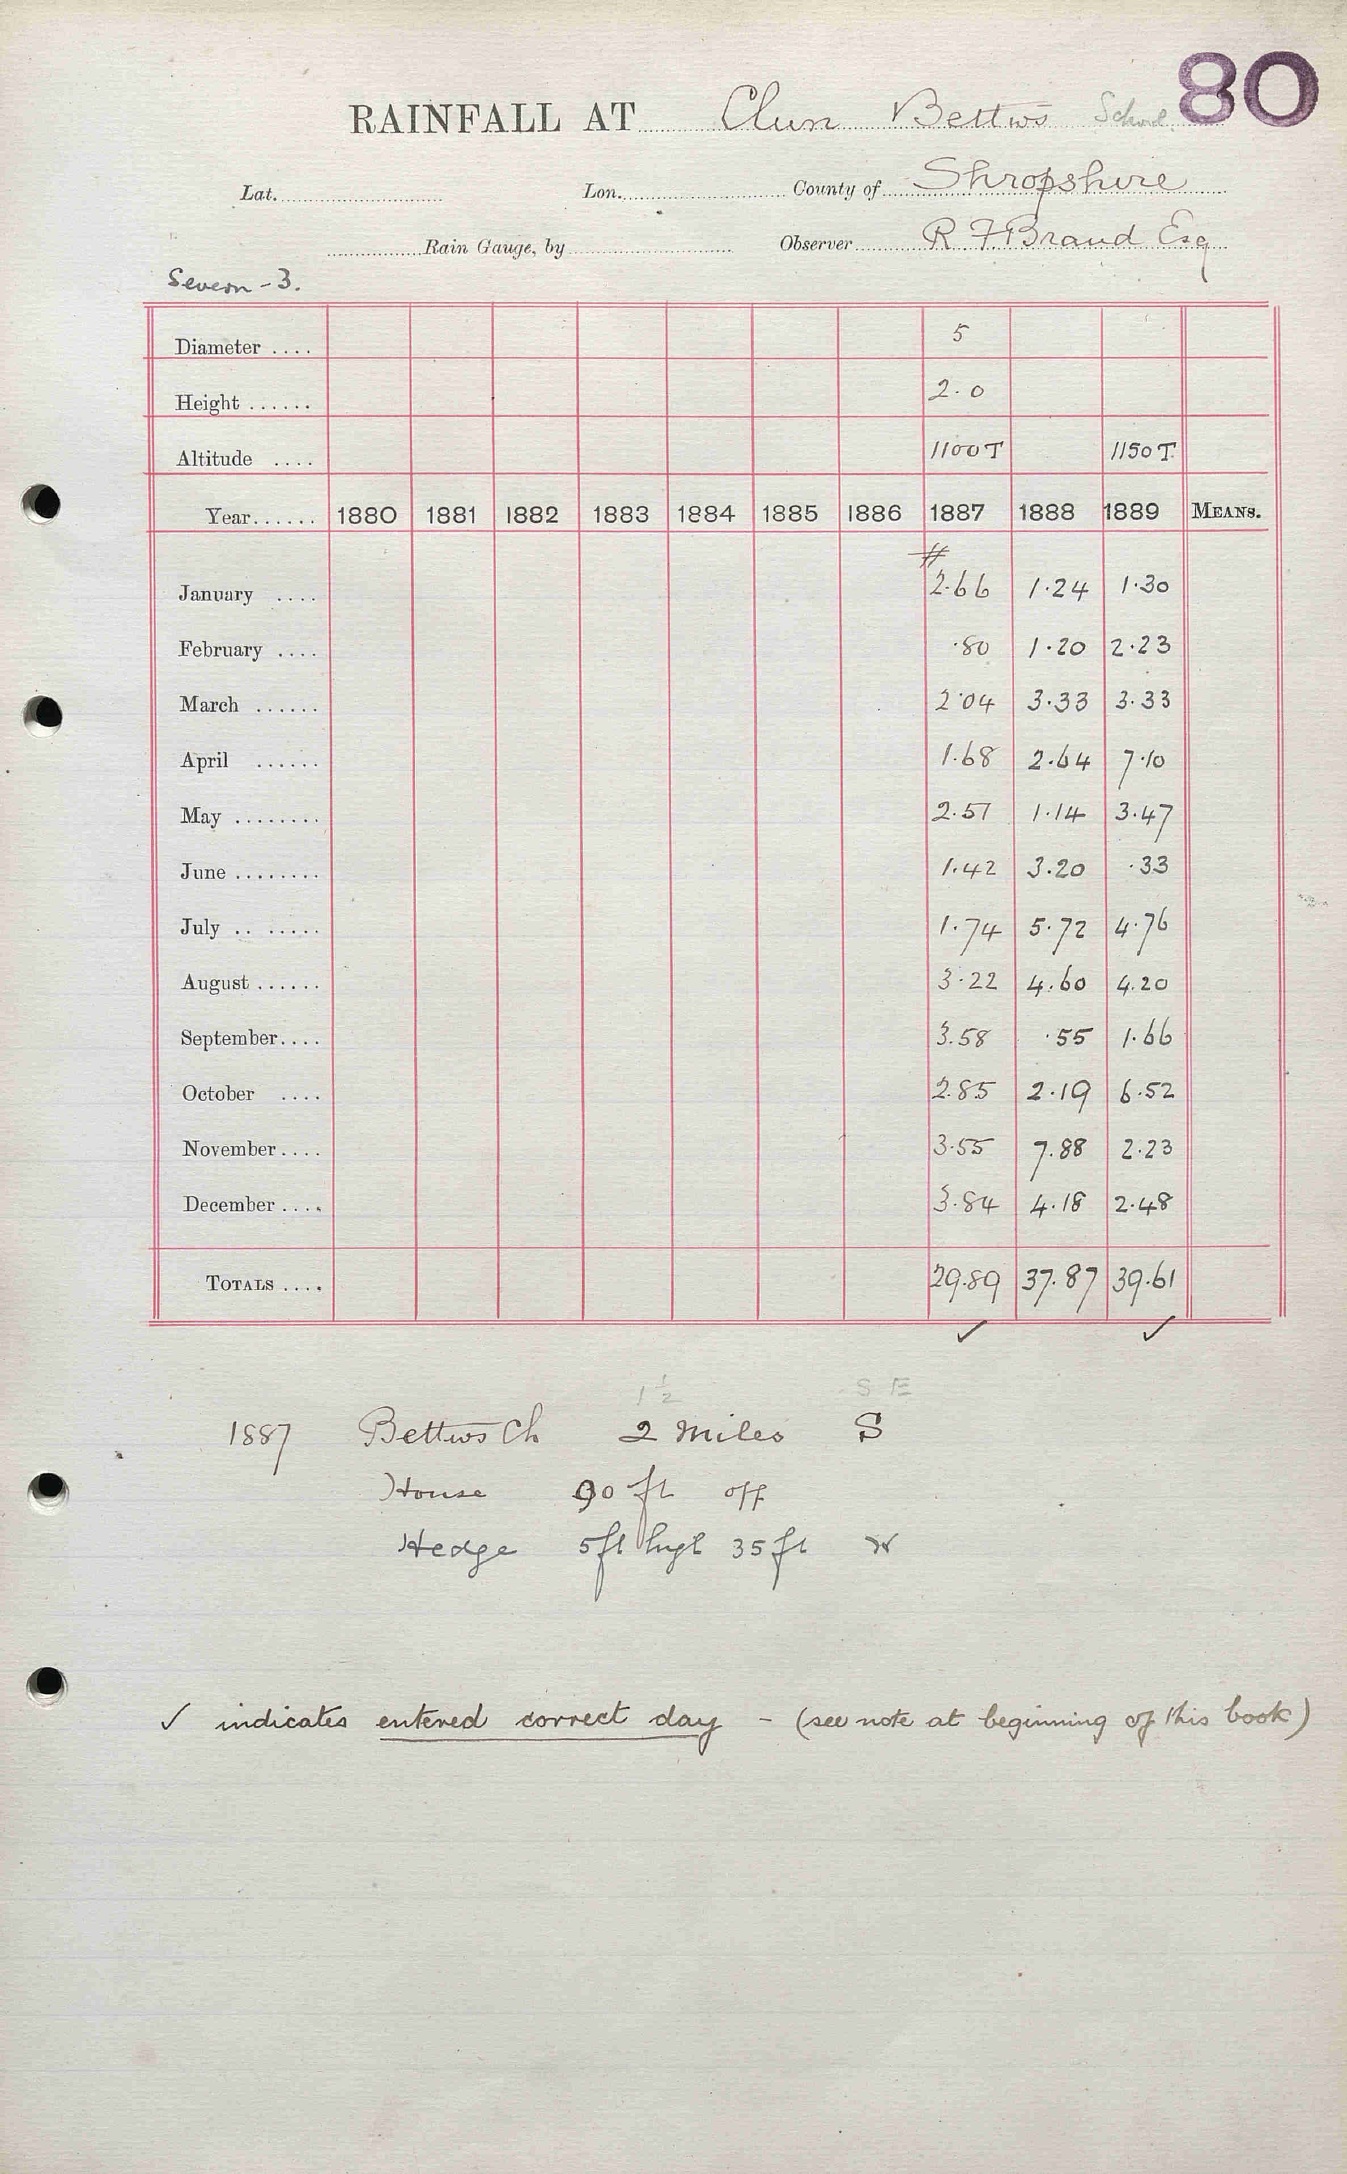 80
RAINFALL AT Clun Bettws School
Lat. Lon. County of Shropshire
Rain Gauge, by Observer R F Brand Esq
Severn - 3.
Diameter .... 5
Height ...... 2.0
Altitude .... 1100 T 1150 T
Year...... 1880 1881 1882 1883 1884 1885 1886 1887 1888 1889 MEANS.
#
January .... 2.66 1.24 1.30
February .... .80 1.20 2.23
March ...... 2.04 3.33 3.33
April ...... 1.68 2.64 7.10
May ........ 2.51 1.14 3.47
June ........ 1.42 3.20 .33
July .. ..... 1.74 5.72 4.76
August ...... 3.22 4.60 4.20
September.... 3.58 .55 1.66
October .... 2.85 2.19 6.52
November.... 3.55 7.88 2.23
December.... 3.84 4.18 2.48
TOTALS .... 29.89 37.87 39.61
✓ ✓
1½ S E
1887 Bettws Ch 2 Miles S
House 90 ft off
Hedge 5ft high 35 ft W
✓ indicates entered correct day - (see note at beginning of this book)